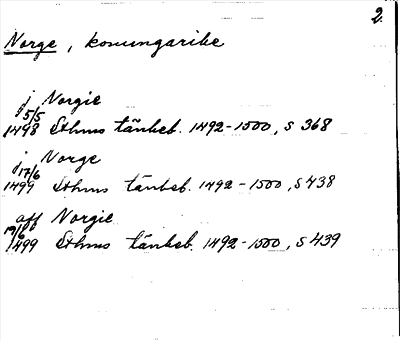 2.
Norge, konungarike
j Norgie
5/5
1498 Sthms tänkeb. 1492-1500, s 368
j Norge
17/6
1499 Sthms tänkeb. 1492-1500, s 438
aff Norgie
19/6
1499 Sthms tänkeb. 1492-1500, s 439